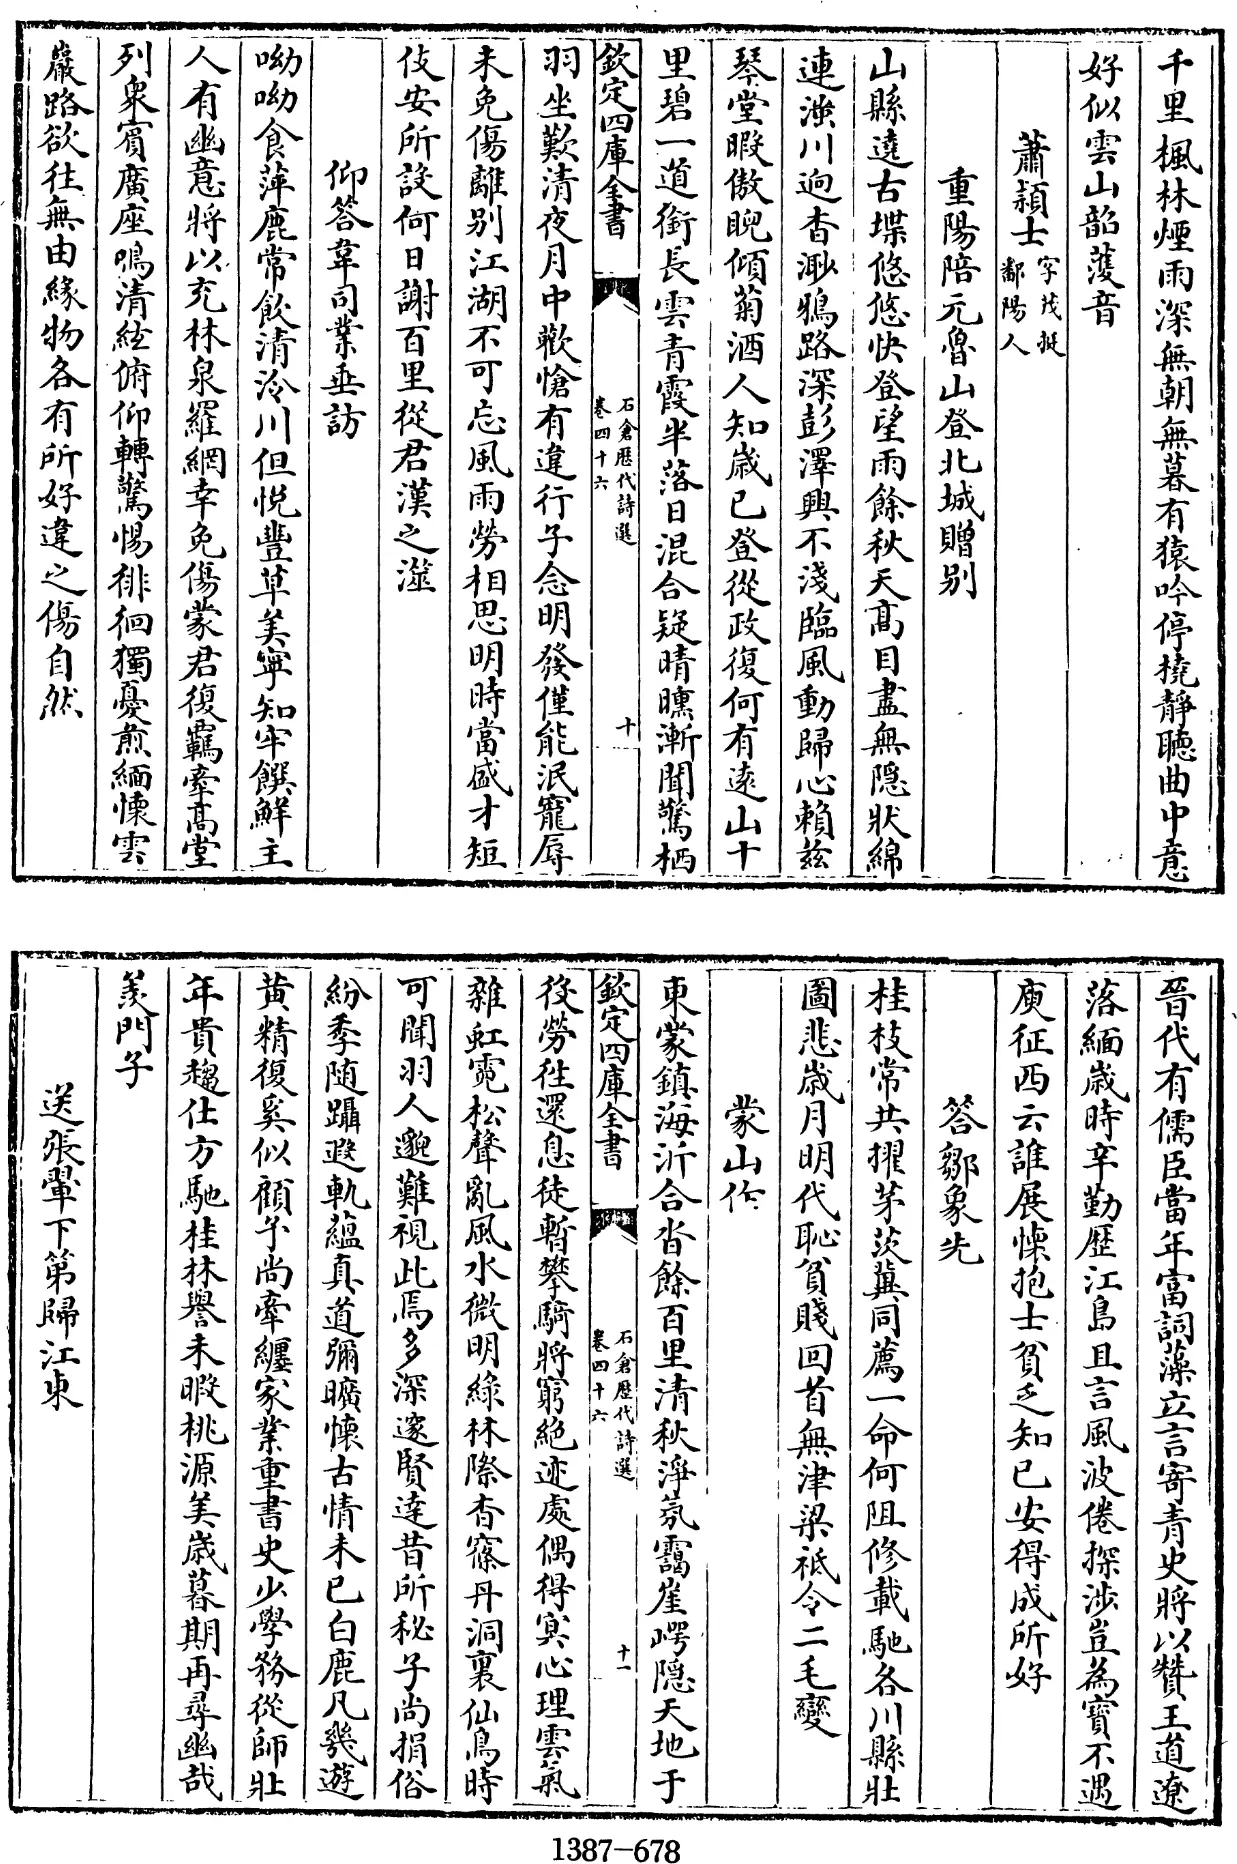 千里楓林煙雨深無朝無暮有猿吟停橈靜聽曲中意
好似雲山韶濩音
蕭穎士字茂挺鄱陽人
重陽陪元魯山登北城贈别
山縣遶古堞悠悠快登望雨餘秋天高目盡無隠狀綿
連滍川迥杳渺鴉路深彭澤興不淺臨風動歸心賴兹
琴堂暇傲睨傾菊酒人和歲已登從政復何有逺山十
里碧一道銜長雲青霞半落日混合疑晴曛漸聞驚栖
欽定四庫全書
石倉歷代詩選
卷四十六
十
羽坐歎清夜月中歡愴有違行子念明發僅能泯寵辱
未免傷離别江湖不可忘風雨勞相思明時當盛才短
伎安所設何日謝百里從君漢之澨
仰答韋司業垂訪
呦呦食萍鹿常飲清泠川但悦豐草美寜知牢饌鮮主
人有幽意將以充林泉羅網幸免傷蒙君復羈牽髙堂
列衆賓廣座鳴清絃俯仰轉驚惕徘徊獨憂煎緬懐雲
巖路欲往無由縁物各有所好違之傷自然
晉代有儒臣當年富詞藻立言寄青史將以贊王道遼
落緬歲時辛勤歴江島且言風波倦探渉豈為寶不遇
庾征西云誰展懐抱士貧乏知已安得成所好
答鄒象先
桂枝常共擢茅茨冀同薦一命何阻修載馳各川縣壮
圖悲歲月明代恥貧賤回首無津梁祗令二毛變
蒙山作
東蒙鎮海沂合沓餘百里清秋淨氛靄崖崿隠天地于
欽定四庫全書
石倉歷代詩選
卷四十六
十一
役勞往還息徒暫攀騎將窮絶迹處偶得㝠心理雲氣
雜虹霓松聲亂風水微明緑林際杳窱丹洞裏仙鳥時
可聞羽人邈難視此焉多深邃賢達昔所秘子尚捐俗
紛季随躡遐軌藴真道彌曠懐古情未已白鹿凡幾遊
黄精復奚似顧予尚牽纒家業重書史少學務從師壮
年貴趨仕方馳桂林譽未暇桃源美歳暮期再尋幽哉
羨門子
送張翬下第歸江東
1387-678